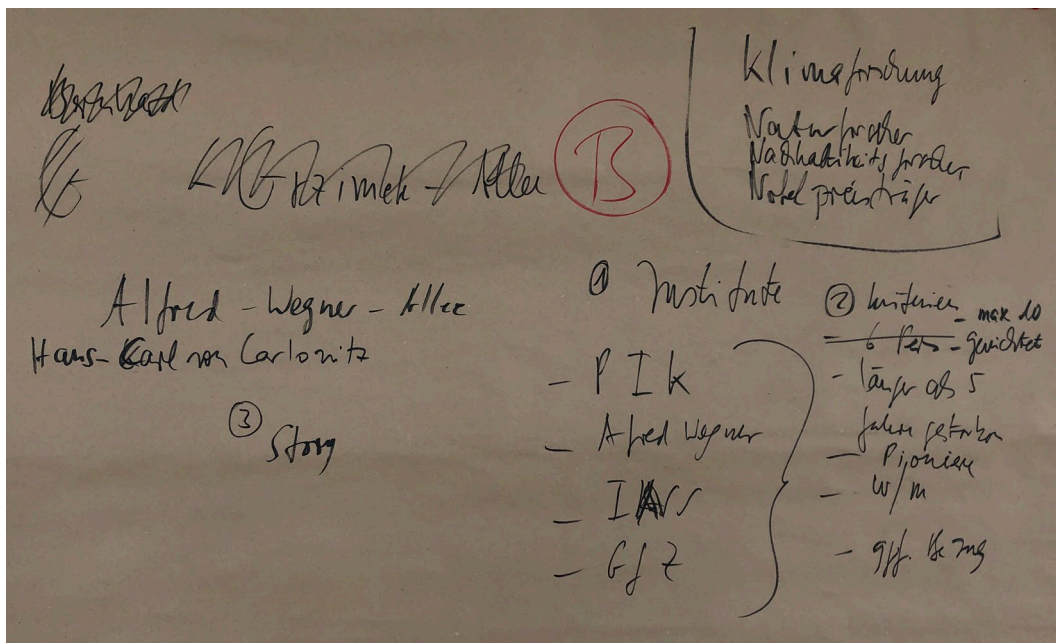 Klimaforschung
Naturforscher
Nachhaltikeitsforscher
Nobelpreisträger
B
Grzimek-Allee
Alfred-Wegner-Allee
Hans-Carl von Carlowitz
③
Story
① Institute
- PIK
- Alfred Wegner
- GfZ
② Kriterien
- max 10
- 6 Pers - gewichtet
- länger als 5
Jahre gestorben
- Pioniere
- w/m
- ggf. Bezug